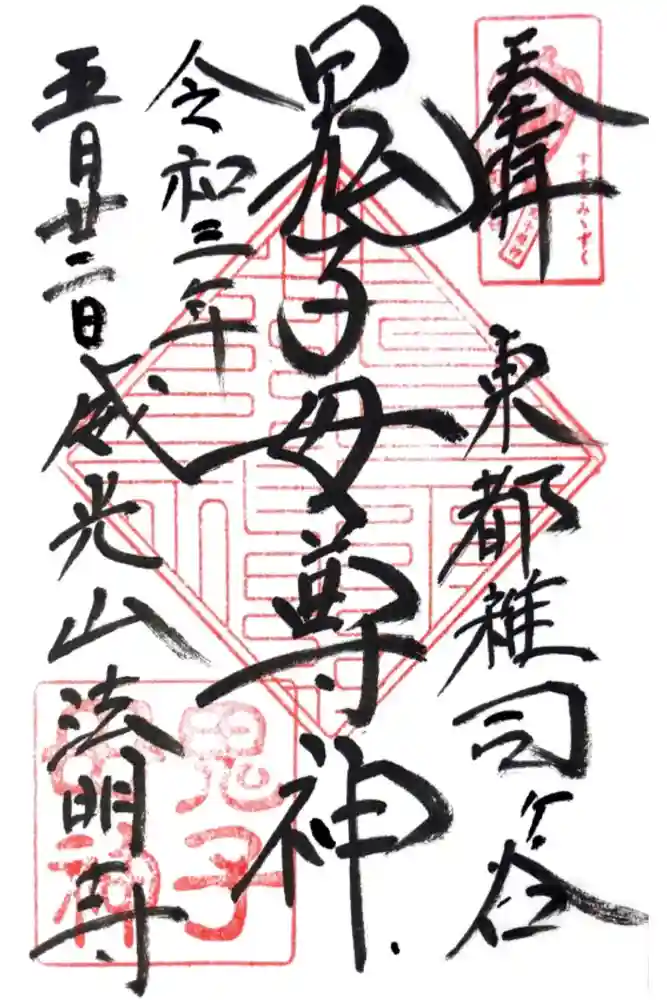 奉拝
すすきみゝずく
東都雑司ヶ谷
鬼子母尊神
令和三年
五月廿二日
威光山法明寺
鬼子
母神